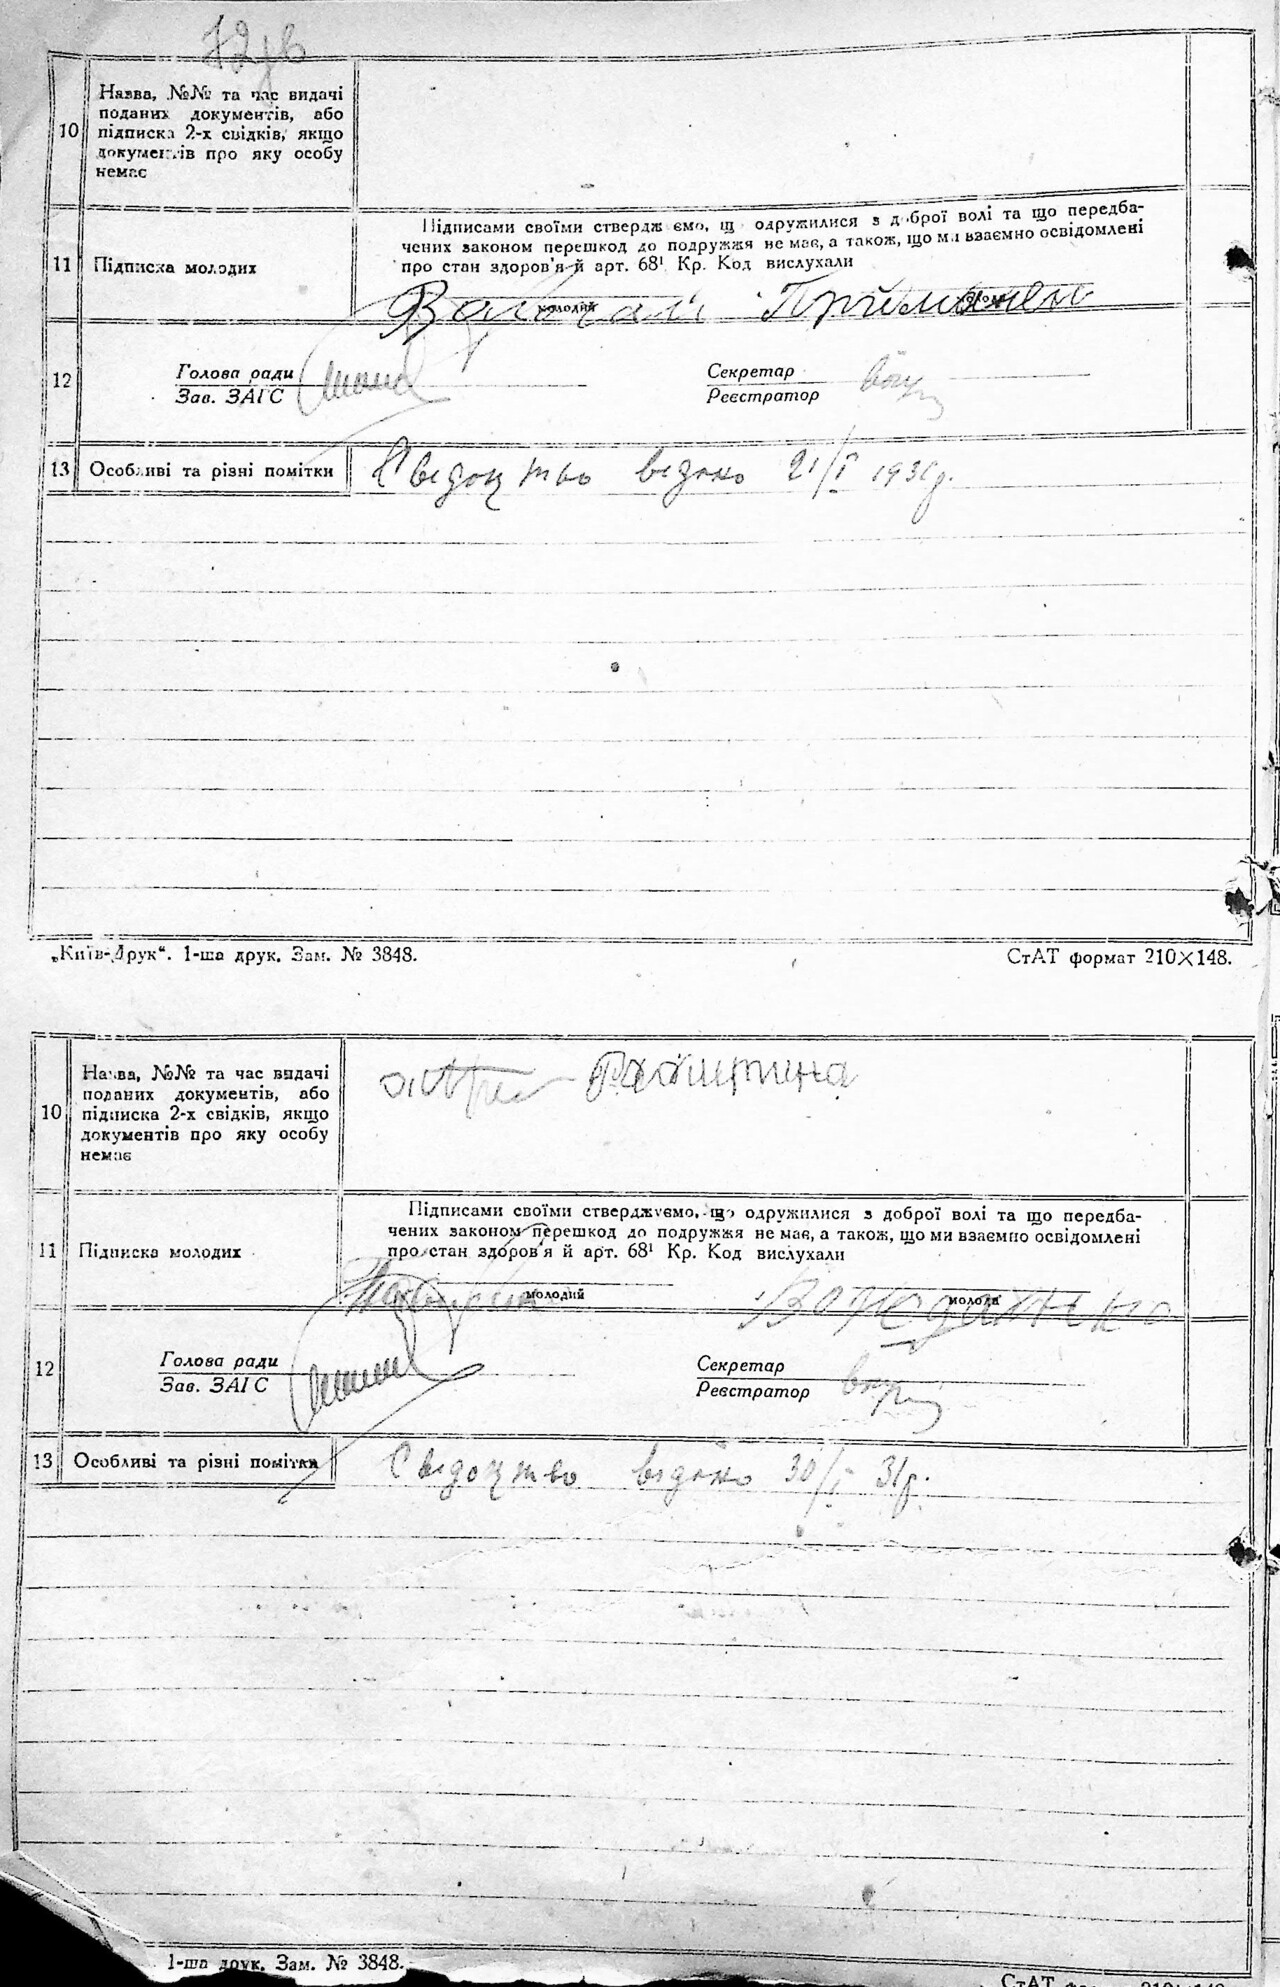 10
Назва, №№ та час видачі
поданих документів, або
підписка 2-х свідків, якщо
документів про яку особу
немає
11
Підписка молодих
Підписами своїми стверджуємо, що одружилися з доброї волі та що передба-
чених законом перешкод до подружжя не має, а також, що ми взаємно освідомлені
про стан здоров'я й арт. 68¹ Кр. Код вислухали
молодий
12
Голова ради
Зав. ЗАГС
Секретар
Реєстратор
13
Особливі та різні помітки
Свідоцтво видано 21/I 1931р.
„Київ-Друк“. 1-ша друк. Зам. № 3848.
СтАТ формат 210×148.
10
Назва, №№ та час видачі
поданих документів, або
підписка 2-х свідків, якщо
документів про яку особу
немає
11
Підписка молодих
Підписами своїми стверджуємо, що одружилися з доброї волі та що передба-
чених законом перешкод до подружжя не має, а також, що ми взаємно освідомлені
про стан здоров'я й арт. 68¹ Кр. Код вислухали
молодий
молода
12
Голова ради
Зав. ЗАГС
Секретар
Реєстратор
13
Особливі та різні помітки
Свідоцтво видано 30/I 31р.
1-ша друк. Зам. № 3848.
СтАТ